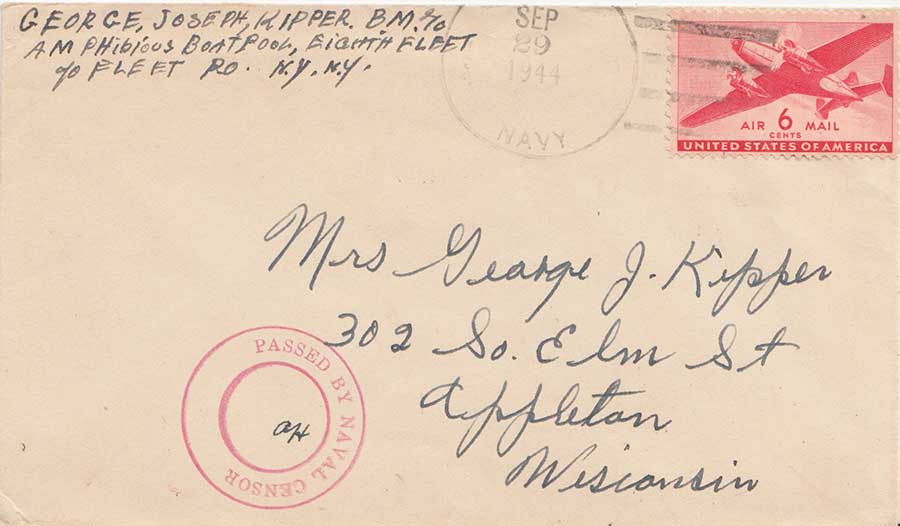 GEORGE, JOSEPH, KIPPER. B.M. %
AMPHIBIOUS BOAT POOL, EIGHTH FLEET
% FLEET P.O. N.Y. N.Y.
SEP
29
1944
NAVY
AIR 6 MAIL
CENTS
UNITED STATES OF AMERICA
Mrs George J. Kipper
302 So. Elm St
Appleton
Wisconsin
PASSED BY NAVAL CENSOR